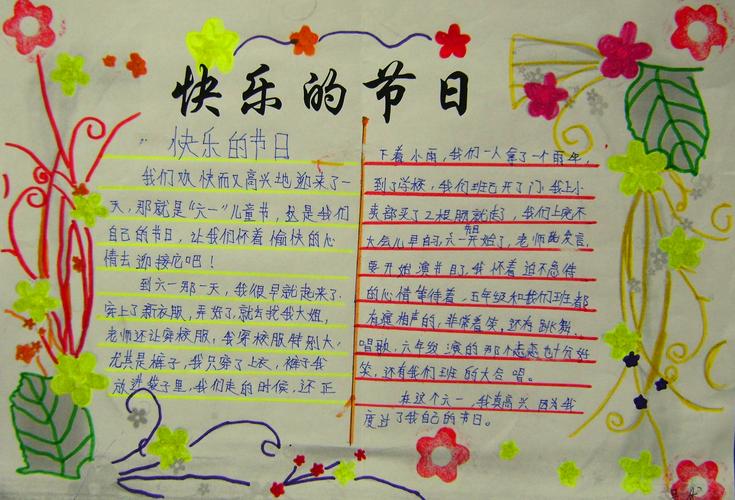 快乐的节日
快乐的节日
我们欢快而又高兴地迎来了一
天,那就是“六一”儿童节,这是我们
自己的节日,让我们怀着愉快的心
情去迎接它吧!
到六一那一天,我很早就起来了,
穿上了新衣服,弄好了,就去找我大姐,
老师还让穿校服,我穿校服特别大,
尤其是裤子,我只穿了上衣,裤子我
放进袋子里,我们走的时候,还正
下着小雨,我们一人拿了一个雨伞,
到了学校,我们班已开了门,我上小
卖部买了2根朋就走了,我们上完不
大会儿早自习,六一开始了,老师发言,
要开始演节目了,我怀着迫不急待
的心情等待着,五年级和我们班都
有演相声的,非常着笑,还有跳舞、
唱歌,六年级演的那个也十分好
笑,还有我们班的大合唱。
在这个六一,我真高兴,因为我
度过了我自己的节日。